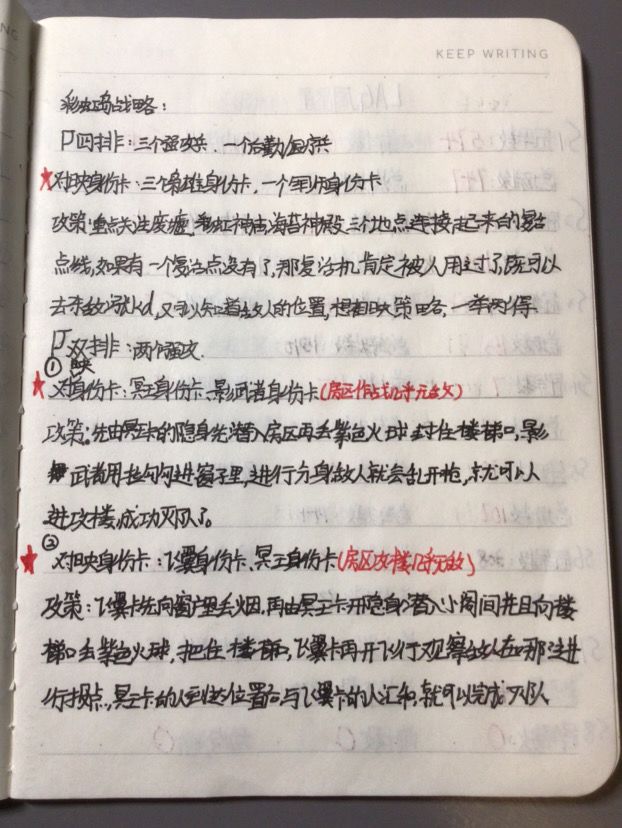 KEEP WRITING
彩虹岛战略:
四排:三个强攻兵,一个后勤
★对映身份卡:三个枭雄身份卡,一个军师身份卡
政策:重点关注废墟,彩虹神庙,海苔神殿三个地点连接起来的复活
点线,如果有一个复活点没有了,那复活机肯定被人用过了,既可以
去杀敌涨kd,又可以知道敌人的位置,想相映策略,一举两得
双排:两个强攻.
① 映
★对身份卡:冥王身份卡、影武者身份卡(房区作战几乎无敌)
政策:先由冥王卡的隐身先潜入房区再丢紫色火球封住楼梯口,影
武者用拉勾勾进窗子里,进行分身敌人就会乱开枪,就可以
进攻楼,成功灭队了。
②
★对映身份卡:飞翼身份卡、冥王身份卡(房区攻楼几乎无敌)
政策:飞翼卡先向窗户里丢烟,再由冥王卡开隐身潜入小阁间并且向楼
梯口丢紫色火球,把住楼梯口,飞翼卡再开飞行观察敌人在哪边进
行损点,冥王卡的人到达位置后与飞翼卡的人汇和,就可以完成灭队